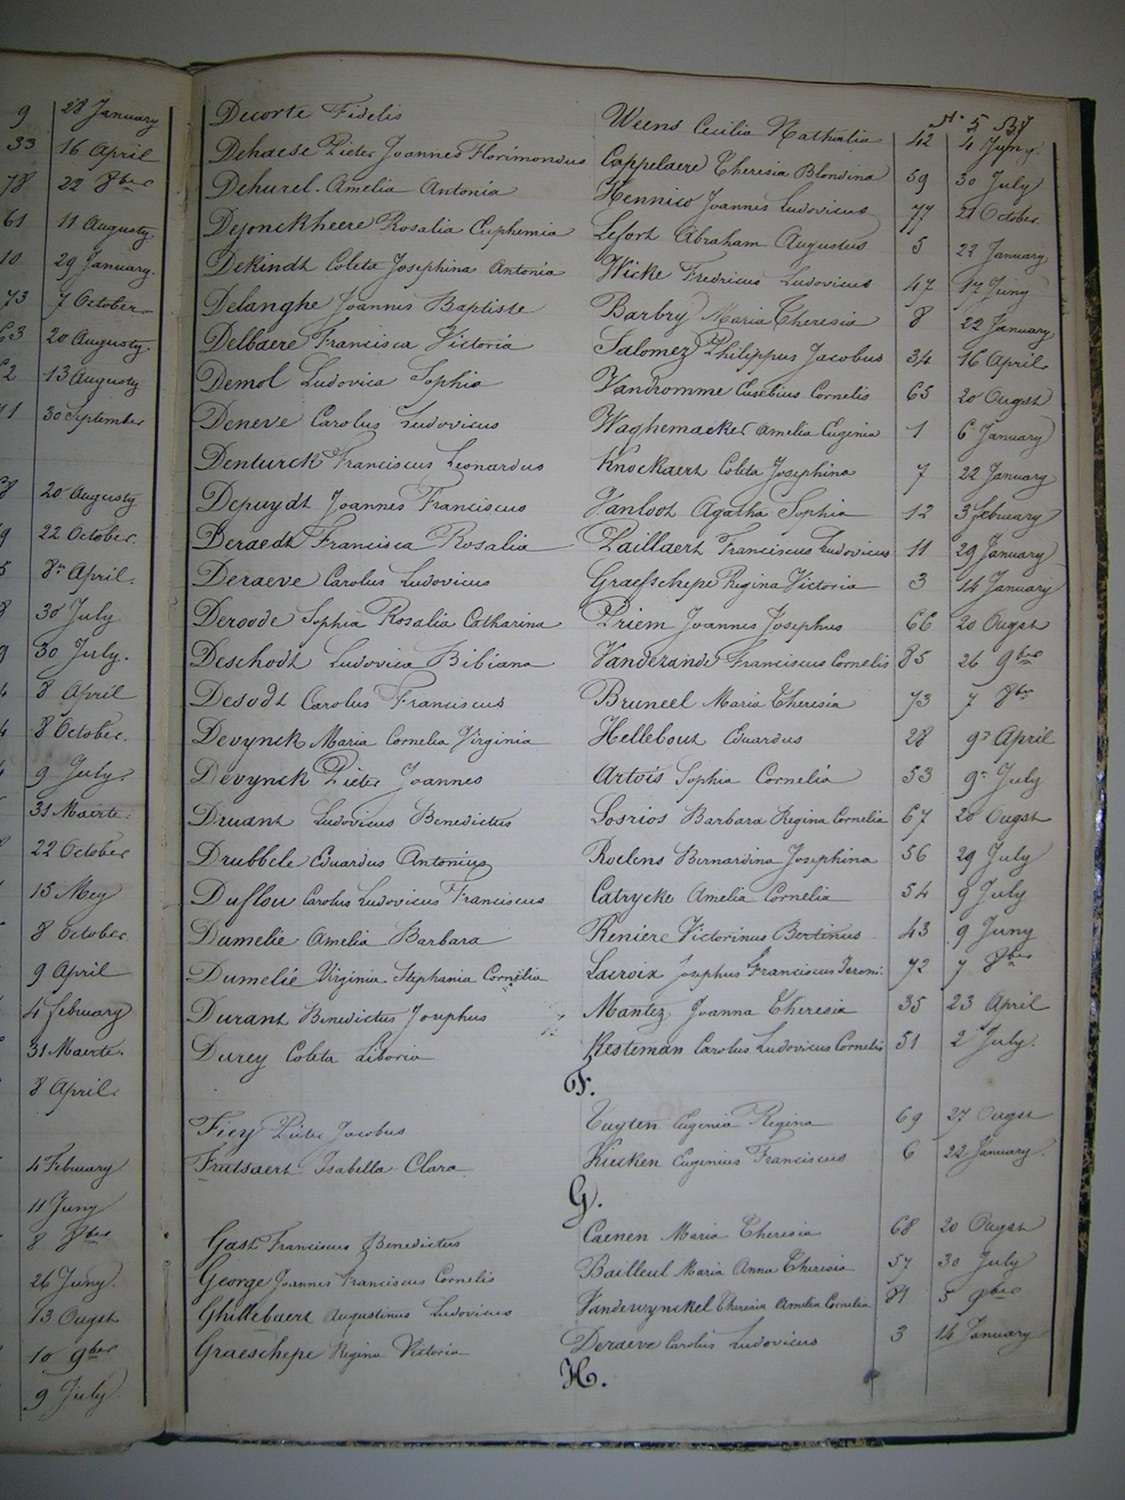 9 28 January
33 16 April
78 22 8ber
61 11 Augusty
10 29 January.
73 7 October
63 20 Augusty.
2 13 Augusty
71 30 September
8 20 Augusty
9 22 October.
5 8n April.
8 30 July
9 30 July.
4 8 April
4 8 October.
9 July.
31 Maerte.
22 October
15 Mey
8 October
9 April
4 february
31 Maerte.
8 April.
4 February
11 Juny
8 8ber
26 Juny.
13 Ougst
10 9ber
9 July.
Decorte Fidelis Weens Cecilia Nathalia 42 4 Juny
Dehaese Pieter Joannes Florimondus Cappelaere Theresia Blondina 59 30 July
Dehurel Amelia Antonia Hennico Joannes Ludovicus 77 21 October
Dejonckheere Rosalia Euphemia Lefort Abraham Augustus 5 22 January
Dekindt Coleta Josephina Antonia Wicke Fredricus Ludovicus 47 17 Juny
Delanghe Joannes Baptiste Barbry Maria Theresia 8 22 January
Delbaere Francisca Victoria Salomez Philippus Jacobus 34 16 April
Demol Ludovica Sophia Vandromme Eusebius Cornelis 65 20 Ougst
Deneve Carolus Ludovicus Waghemacker Amelia Eugenia 1 6 January
Denturck Franciscus Leonardus Knockaert Coleta Josephina 7 22 January
Depuydt Joannes Franciscus Vanloot Agatha Sophia 12 3 february
Deraedt Francisca Rosalia Paillaert Franciscus Ludovicus 11 29 January
Deraeve Carolus Ludovicus Graesschepe Regina Victoria 3 14 January
Deroode Sophia Rosalia Catharina Priem Joannes Josephus 66 20 Ougst
Deschodt Ludovica Bibiana Vanderande Franciscus Cornelis 85 26 9ber
Desodt Carolus Franciscus Bruneel Maria Theresia 73 7 8ber
Devynck Maria Cornelia Virginia Hellebout Eduardus 28 9n April
Devynck Pieter Joannes Artois Sophia Cornelia 53 9n July
Druant Ludovicus Benedictus Sosrios Barbara Regina Cornelia 67 20 Ougst
Drubbele Eduardus Antonius Roelens Bernardina Josephina 56 29 July
Duflou Carolus Ludovicus Franciscus Catrycke Amelia Cornelia 54 9 July
Dumelie Amelia Barbara Reniere Victorinus Bertinus 43 9 Juny
Dumelié Virginia Stephania Cornelia Lacroix Josephus Franciscus Jeroni. 72 7 8ber
Durant Benedictus Josephus Mantez Joanna Theresia 35 23 April
Durey Coleta Liboria Kesteman Carolus Ludovicus Cornelis 51 2 July.
F.
Fiey Pieter Jacobus Tuyten Eugenia Regina 69 27 Ougst
Frutsaert Isabella Clara Kieken Eugenius Franciscus 6 22 January.
G.
Gast Franciscus Benedictus Caenen Maria Theresia 68 20 Ougst
George Joannes Franciscus Cornelis Bailleul Maria Anna Theresia 57 30 July
Ghillebaert Augustinus Ludovicus Vandewynckel Theresia Amelia Cornelia 81 5 9ber
Graeschepe Regina Victoria Deraeve Carolus Ludovicus 3 14 January
H.